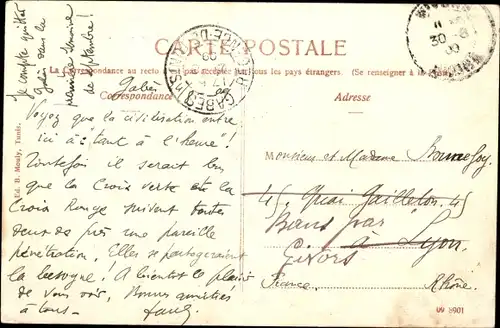 Je compte quitter
Gabès dans la
première
de Septembre !
CARTE POSTALE
La Correspondance au recto n'est pas acceptée par tous les pays étrangers. (Se renseigner à la Poste)
Correspondance
Adresse
GABES
Gabès
Voyez que la civilisation entre
ici à "tant à l'heure" !
Toutefois il serait bon
que la Croix verte et la
Croix Rouge suivent toutes
deux de près une pareille
pénétration. Elles se partageraient
la besogne ! A bientôt le plaisir
de vous voir, Bonnes amitiés
à tous.
Monsieur et Madame
45, Quai Gailleton 45
Bans par
à Lyon
Givors
France
Rhône
Ed. B. Mouly, Tunis.
09 8901